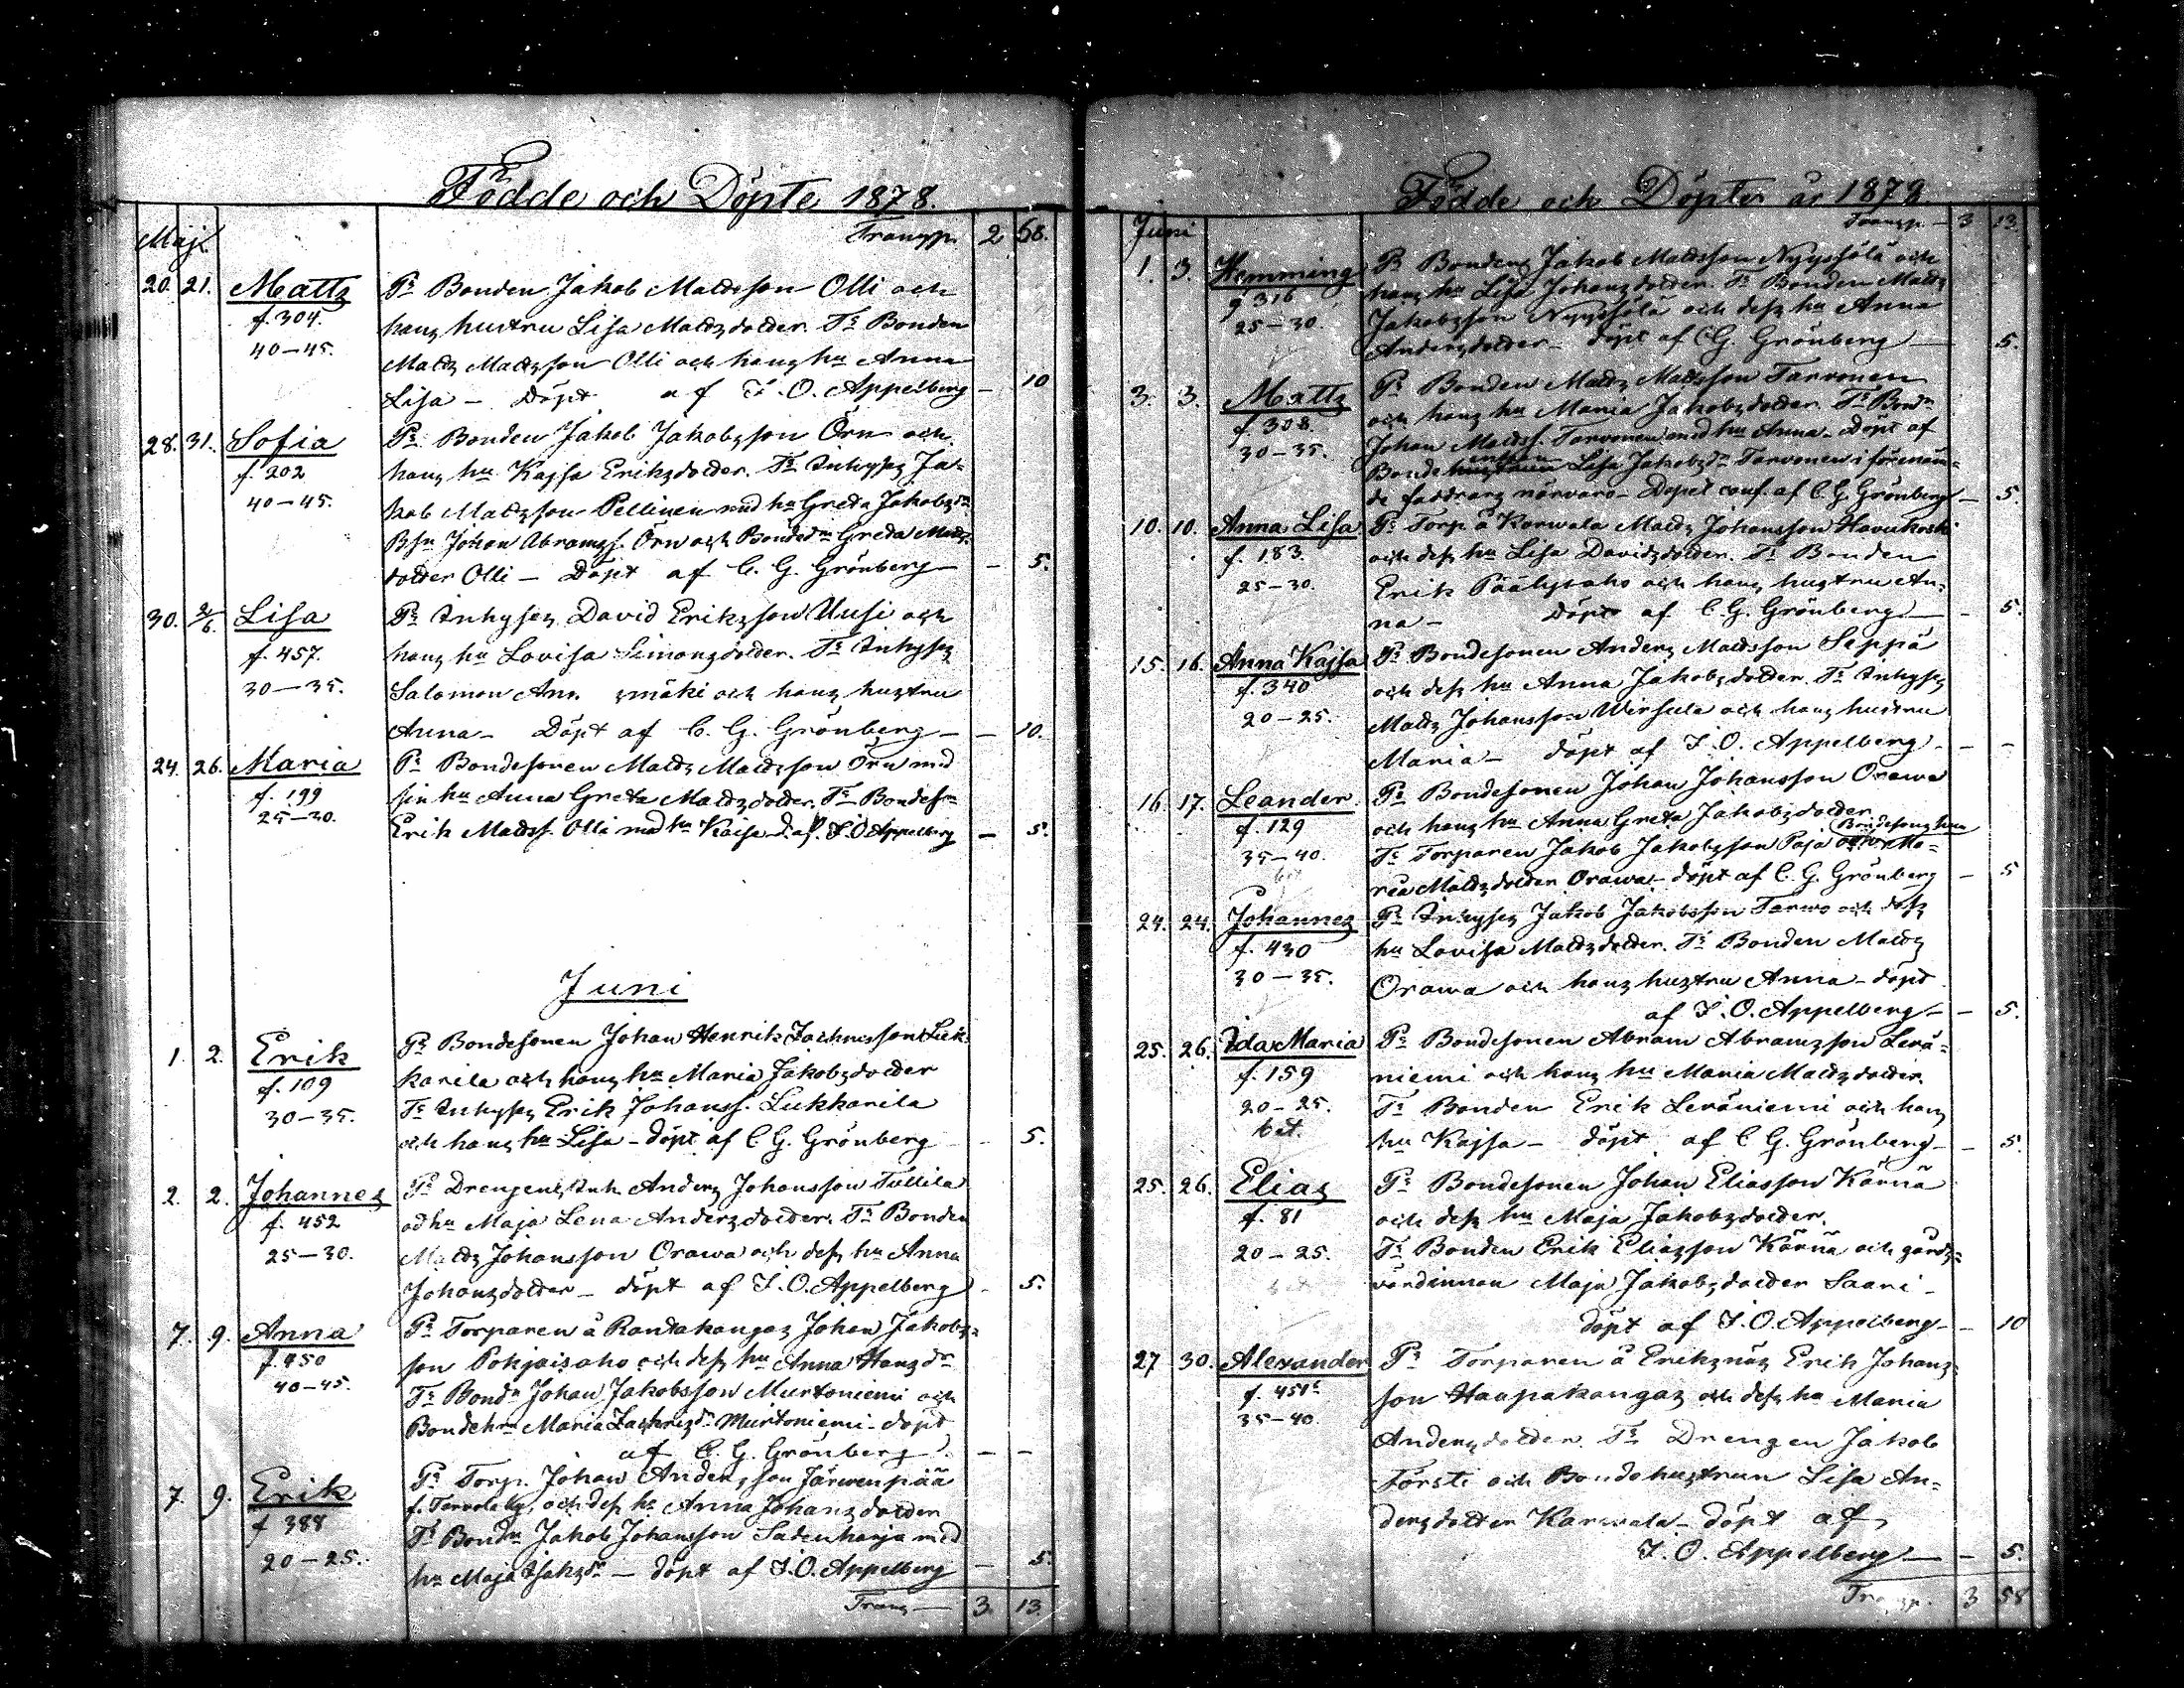 Födde och Döpte 1878.
Maji
Transp. 2 68.
20. 21. Matts Pr Bonden Jakob Mattsson Olli och
f. 304. hans hustru Lisa Mattsdotter. Tr Bonden
40-45. Matts Mattsson Olli och hans hu Anna
Lisa - Döpt af F. O. Appelberg - 10
28. 31. Sofia Pr Bonden Jakob Jakobsson Örn och
f. 202 hans hu Kajsa Eriksdotter. Tr Inhyses Ja-
40-45. kob Mattsson Pellinen med hu Greta Jakobsdr
Bsn Johan Abramss. Örn och Bondedr Greta Matts-
dotter Olli - Döpt af C. G. Grönberg - - 5.
30. 2/6. Lisa Pr Inhyses David Eriksson Uusi och
f. 457. hans hu Lovisa Simonsdotter. Tr Inhyses
30-35. Salomon och hans hustru
Anna - Döpt af C. G. Grönberg - - 10.
24. 26. Maria Pr Bondesonen Matts Mattsson Örn med
f. 199 sin hu Anna Greta Mattsdotter. Tr Bondesn
25-30. Erik Matss. Olli med hu Kaisa d. af F. O. Appelberg - 5.
Juni
1. 2. Erik Pr Bondesonen Johan Henrik Zachrisson Luk-
f. 109 karila och hans hu Maria Jakobsdotter
30-35. Tr Inhyses Erik Johanss. Lukkarila
och hans hu Lisa - döpt af C G. Grönberg - 5.
2. 2. Johannes Pr Drengen Inh. Anders Johansson Tullila
f. 452 och hu Maja Lena Andersdotter. Tr Bonden
25-30. Matts Johansson Orawa och dess hu Anna
Johansdotter - döpt af F. O. Appelberg - 5.
7. 9. Anna Pr Torparen å Rantakangas Johan Jakobs-
f. 450 son Pohjoisaho och dess hu Anna Hansdr
40-45. Tr Bondn Johan Jakobsson Murtoniemi och
Bondehn Maria Zachrisdr Murtoniemi - döpt
af C. G. Grönberg - -
7. 9. Erik Pr Torp. Johan Andersson Järwenpää
f 388 och dess hu Anna Johansdotter
20-25. Tr Bondn Jakob Johansson Satenharja med
hu Maja Isaksdr - döpt af F. O. Appelberg - 5.
Trans - 3. 13.
Födde och Döpte år 1878
Juni
Transp. - 3 13.
1. 3. Hemming Pr Bonden Jakob Mattsson Nyyssölä och
316 hans hu Lisa Johansdotter. Tr Bonden Matts
25-30. Jakobsson Nyyssölä och dess hu Anna
Andersdotter - döpt af C G. Grönberg - 5.
3. 3. Matts Pr Bonden Matts Mattsson Tarvonen
f. 308. och hans hu Maria Jakobsdotter. Tr Bondn
30-35. Johan Mattss. Tarvonen med hu Anna - Döpt af
Bonde Lisa Jakobsdr Tarvonen i förenäm-
de faddrars närvaro - Dopet conf. af C. G. Grönberg - 5.
10. 10. Anna Lisa Pr Torp. å Korwala Matts Johansson Havukoski
f. 183. och dess hu Lisa Davidsdotter. Tr Bonden
25-30. Erik Päälysaho och hans hustru An-
na - Döpt af C. G. Grönberg - - 5.
15. 16. Anna Kajsa Pr Bondesonen Anders Mattsson Seppä
f. 340 och dess hu Anna Jakobsdotter. Tr Inhyses
20-25. Matts Johansson Wirsula och hans hustru
Maria - döpt af F. O. Appelberg - - -
16. 17. Leander Pr Bondesonen Johan Johansson Orawa
f. 129 och hans hu Anna Greta Jakobsdotter.
35-40. Tr Torparen Jakob Jakobsson Paja och Bondesons hun Ma-
ria Mattsdotter Orawa - döpt af C. G. Grönberg - 5
24. 24. Johannes Pr Inhyses Jakob Jakobsson Tarwo och dess
f. 430 hu Lovisa Mattsdotter. Tr Bonden Matts
30-35. Orawa och hans hustru Anna - döpt
af F. O. Appelberg - - 5.
25. 26. Ida Maria Pr Bondesonen Abram Abramsson Lerä-
f. 159 niemi och hans hu Maria Mattsdotter.
20-25. Tr Bonden Erik Leräniemi och hans
bet. hu Kajsa - döpt af C G. Grönberg - - 5.
25. 26. Elias Pr Bondesonen Johan Eliasson Kärnä
f. 81 och dess hu Maja Jakobsdotter.
20-25. Tr Bonden Erik Eliasson Kärnä och gårds-
värdinnan Maja Jakobsdotter Saari -
döpt af F. O. Appelberg - - 10
27 30. Alexander Pr Torparen å Eriksnäs Erik Johans-
f. 451 son Haapakangas och dess hu Maria
35-40. Andersdotter. Tr Drengen Jakob
Försti och Bondehustrun Lisa An-
dersdotter Karwala - döpt af
F. O. Appelberg - - 5.
Transp. 3 58